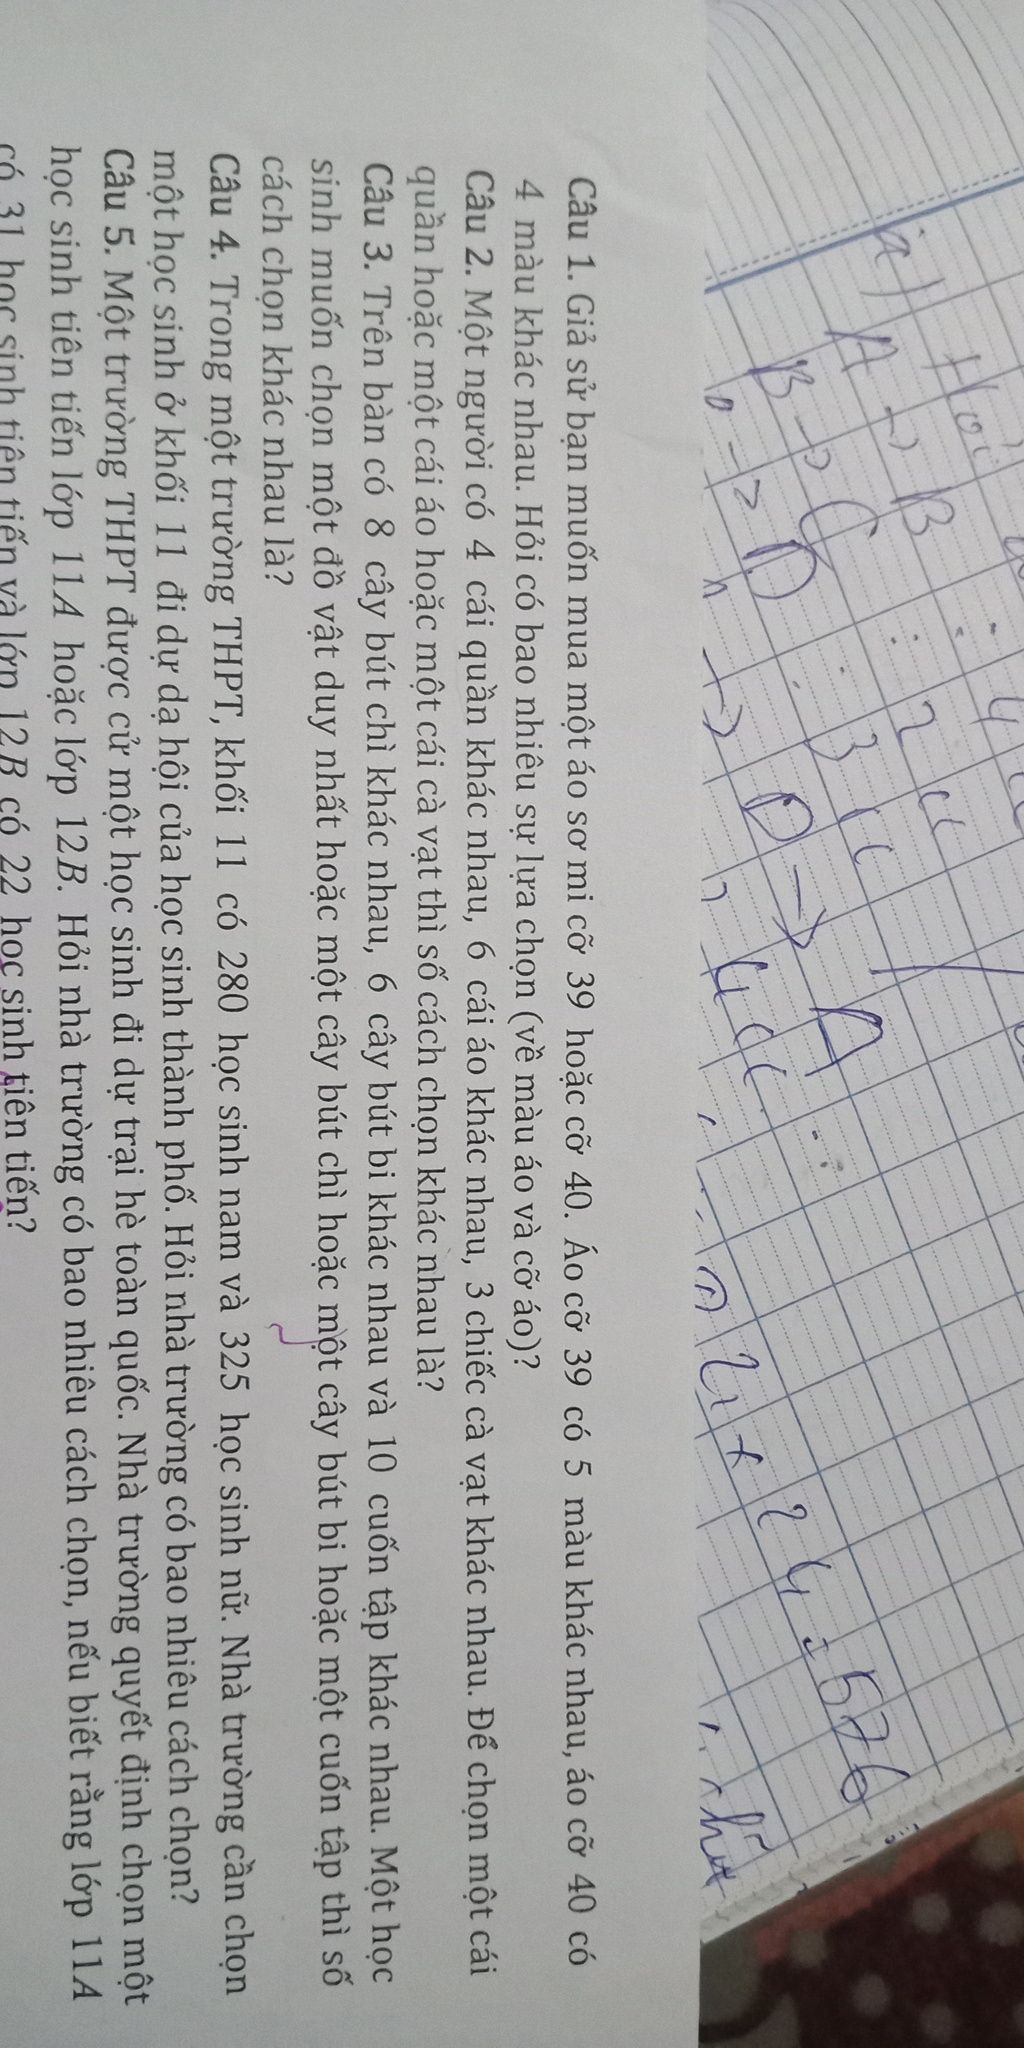 a) Hoi
A → B : 2 cc
B → C : 3 cc
→ D : 4 cc
→ D → A :
24 + 24 = 576
Câu 1. Giả sử bạn muốn mua một áo sơ mi cỡ 39 hoặc cỡ 40. Áo cỡ 39 có 5 màu khác nhau, áo cỡ 40 có
4 màu khác nhau. Hỏi có bao nhiêu sự lựa chọn (về màu áo và cỡ áo)?
Câu 2. Một người có 4 cái quần khác nhau, 6 cái áo khác nhau, 3 chiếc cà vạt khác nhau. Để chọn một cái
quần hoặc một cái áo hoặc một cái cà vạt thì số cách chọn khác nhau là?
Câu 3. Trên bàn có 8 cây bút chì khác nhau, 6 cây bút bi khác nhau và 10 cuốn tập khác nhau. Một học
sinh muốn chọn một đồ vật duy nhất hoặc một cây bút chì hoặc một cây bút bi hoặc một cuốn tập thì số
cách chọn khác nhau là?
Câu 4. Trong một trường THPT, khối 11 có 280 học sinh nam và 325 học sinh nữ. Nhà trường cần chọn
một học sinh ở khối 11 đi dự dạ hội của học sinh thành phố. Hỏi nhà trường có bao nhiêu cách chọn?
Câu 5. Một trường THPT được cử một học sinh đi dự trại hè toàn quốc. Nhà trường quyết định chọn một
học sinh tiên tiến lớp 11A hoặc lớp 12B. Hỏi nhà trường có bao nhiêu cách chọn, nếu biết rằng lớp 11A
có 31 học sinh tiên tiến và lớp 12B có 22 học sinh tiên tiến?